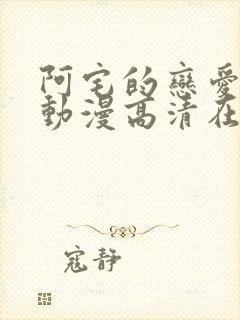 阿宅的戀愛
動漫高清在
寇静